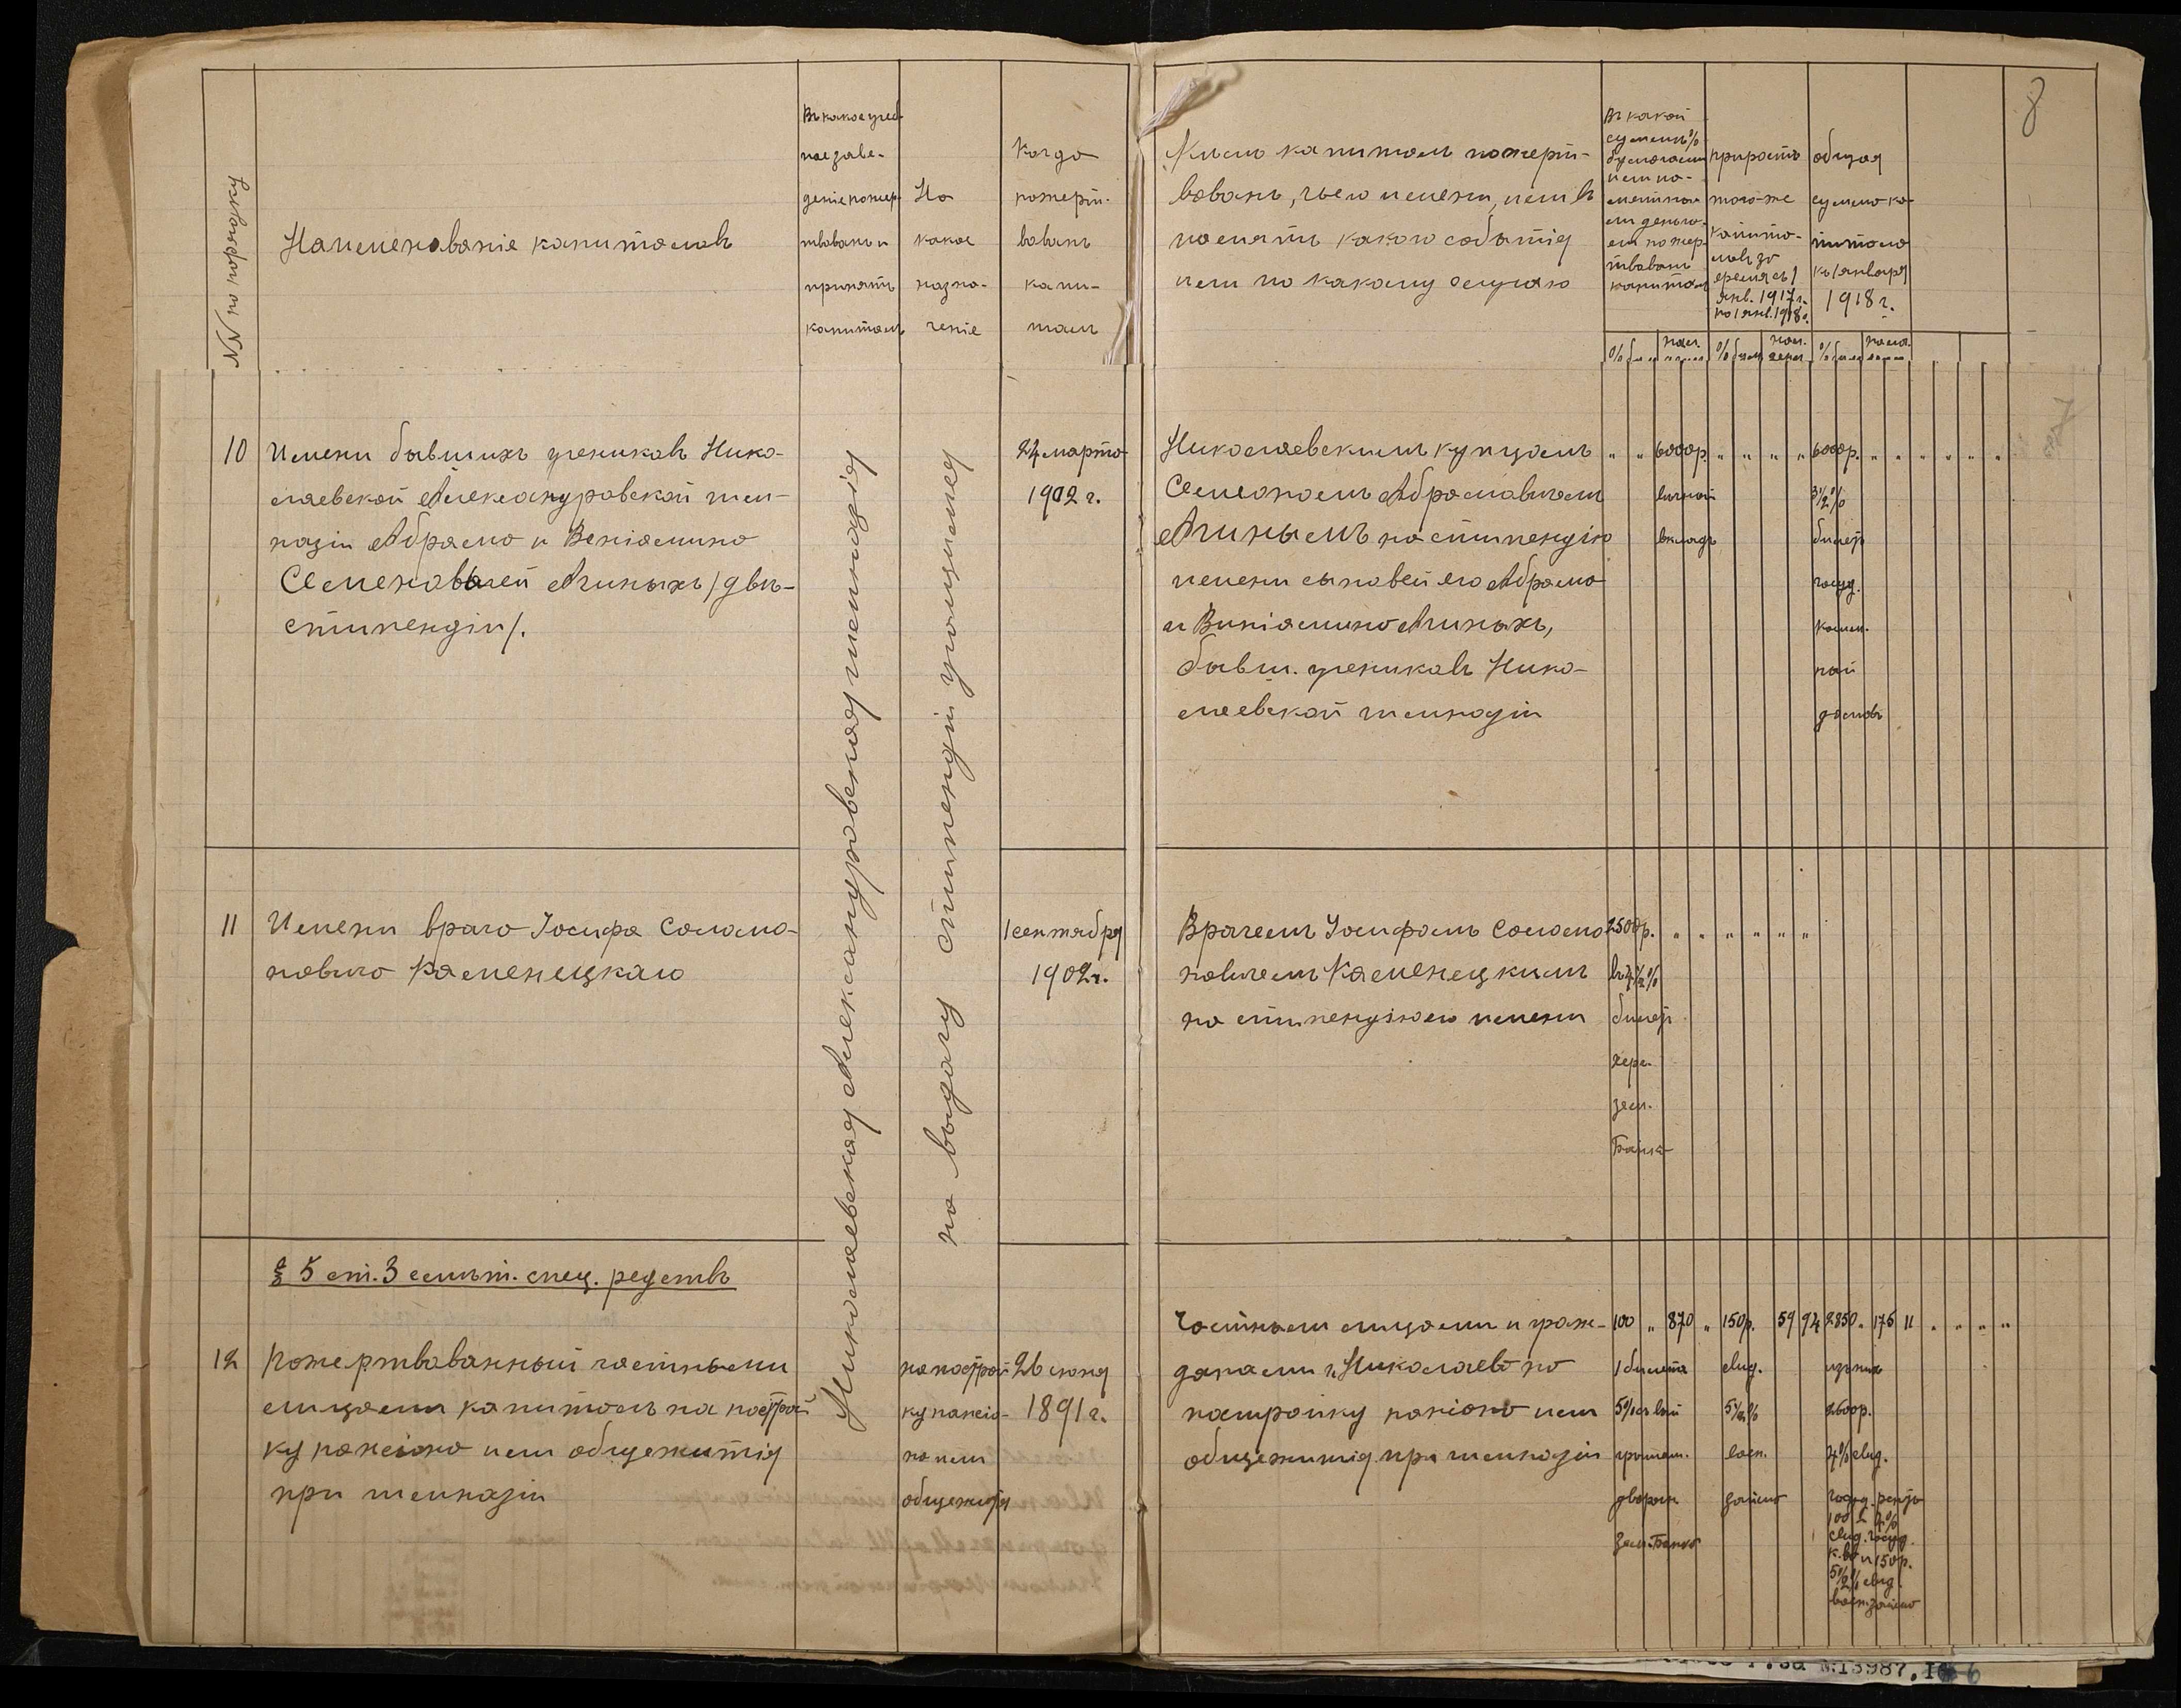 NN по порядку
Наименованіе капиталовъ
Въ какое учеб-
ное заве-
деніе пожер-
твованъ и
принятъ
капиталъ
На
какое
назна-
ченіе
Когда
пожерт-
вованъ
капи-
талъ
Кѣмъ капиталъ пожерт-
вованъ, чьего имени, или въ
память какого событія
или по какому случаю
Въ какой
суммѣ %
бумагами
или на-
личными
деньга-
ми пожер-
твованъ
капиталъ
приростъ
того-же
капита-
ловъ за
время съ 1
янв. 1917 г.
по 1 янв. 1918 г.
общая
сумма ка-
питала
къ 1 января
1918 г.
8
10
Имени бывшихъ учениковъ Нико-
лаевской Александровской гим-
назіи Абрама и Веніамина
Семеновичей Ачиныхъ /двѣ-
стипендіи/.
Николаевская Александровская гимназія
на выдачу стипендіи учащимся
24 марта
1902 г.
Николаевскимъ купцомъ
Семеномъ Абрамовичемъ
Ачинымъ на стипендію
имени сыновей его Абрама
и Виніамина Ачиныхъ,
бывш. учениковъ Нико-
лаевской гимназіи
" " 6000р. " " " " 6000р. " " " " " "
вклад
3½%
билет
госуд.
комм.
11
Имени врача Іосифа Соломо-
новича Каменецкаго
1 сентября
1902 г.
Врачемъ Іосифомъ Соломо
новичемъ Каменецким
на стипендію его имени
2500р. " " " " " "
въ 4½%
билет
херс.
зем.
Банка
§ 5 ст. 3 смѣт. спец. редствъ
12
Пожертвованный частными
лицами капиталъ на построй
ку пансіона или общежитія
при гимназіи
на построй-
ку пансіо-
на или
общежитія
26 іюня
1891 г.
Частными лицами и граж-
данами г. Николаева на
пастройку пансіона или
общежитія при гимназіи
100 " 870 " 150р. 59 94 2850 " 176 11 " " " "
1 билета
дворян
Зем. Банка
свид.
5½%
воен.
займа
изъ них
2600р.
4% свид.
госуд. ренты
100 р. 4%
свид. госуд.
и 150р.
5½% свид.
воен. займа
N:13987.